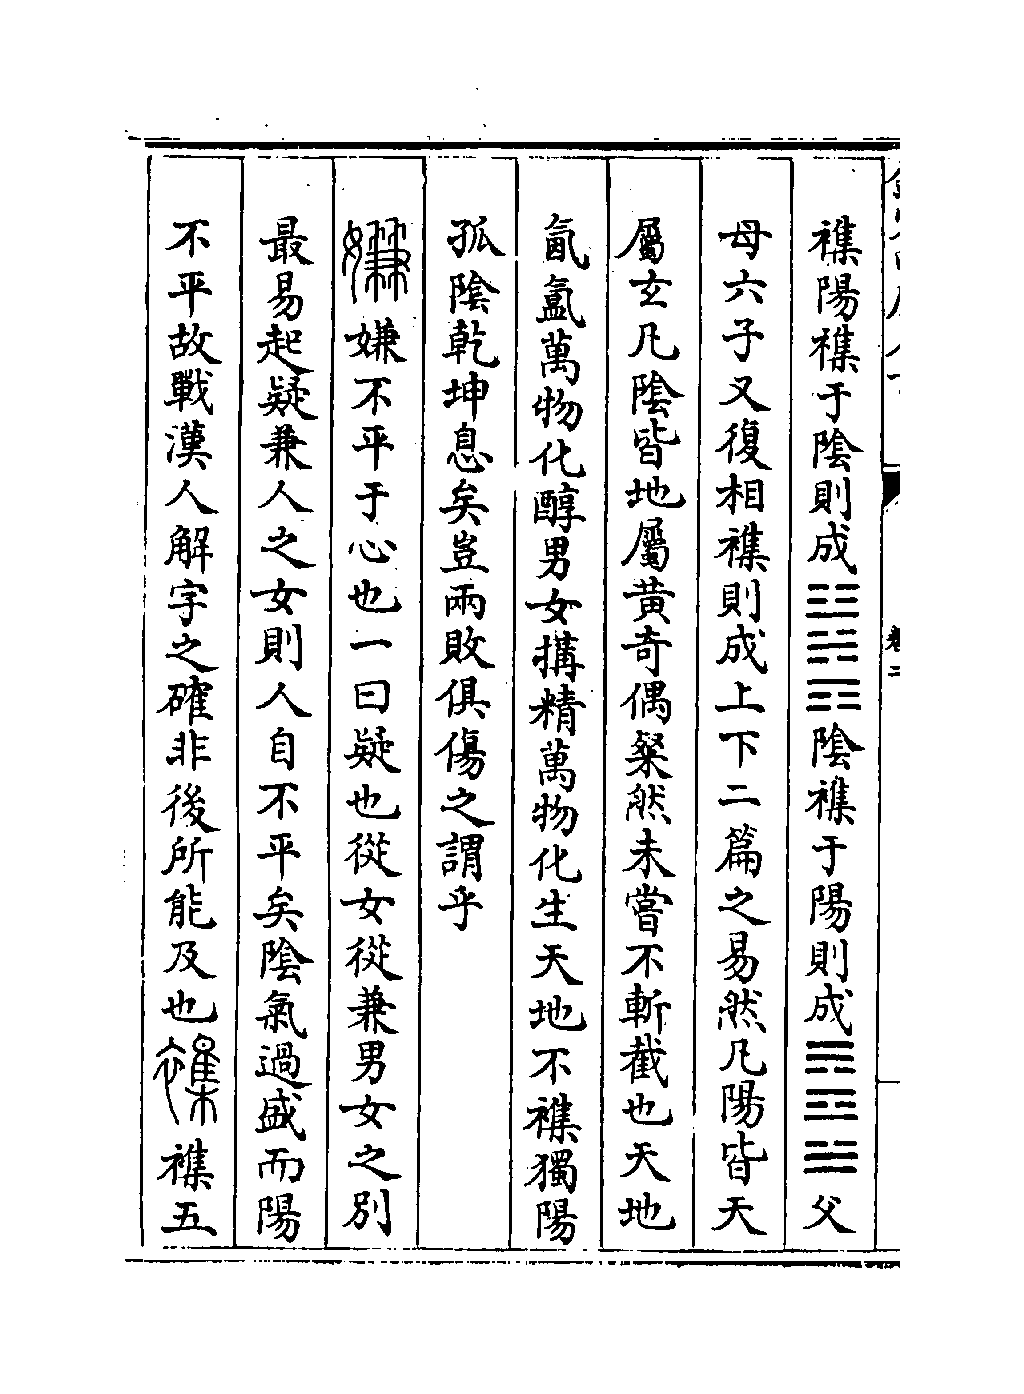 襍陽襍于陰則成☳☵☶陰襍于陽則成☴☲☱父
母六子又復相襍則成上下二篇之易然凡陽皆天
屬玄凡陰皆地屬黄奇偶粲然未嘗不斬截也天地
氤氳萬物化醇男女搆精萬物化生天地不襍獨陽
孤陰乾坤息矣豈兩敗俱傷之謂乎
嫌嫌不平于心也一曰疑也從女從兼男女之別
最易起疑兼人之女則人自不平矣陰氣過盛而陽
不平故戰漢人解字之確非後所能及也襍襍五